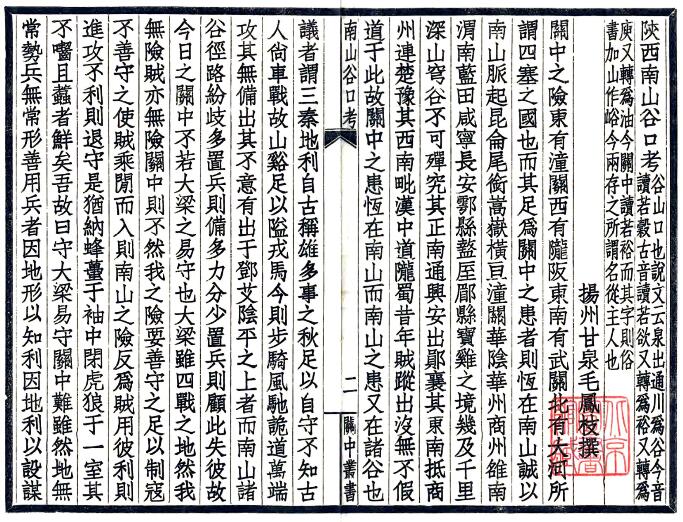 陝西南山谷口考
谷山口也說文云泉出通川為谷今音
讀若穀古音讀若欲又轉為裕又轉為
庾又轉為油今關中讀若裕而其字則俗
書加山作峪今兩存之所謂名從主人也
揚州甘泉毛鳳枝撰
關中之險東有潼關西有隴阪東南有武關北有大河所
謂四塞之國也而其足為關中之患者則恆在南山誠以
南山脈起昆侖尾銜嵩嶽橫亘潼關華陰華州商州雒南
渭南藍田咸寧長安鄠縣盩厔郿縣寶雞之境幾及千里
深山窮谷不可殫究其正南通興安出鄖襄其東南抵商
州連楚豫其西南毗漢中道隴蜀昔年賊蹤出沒無不假
道于此故關中之患恆在南山而南山之患又在諸谷也
南山谷口考
二
關中叢書
議者謂三秦地利自古稱雄多事之秋足以自守不知古
人尚車戰故山谿足以隘戎馬今則步騎風馳詭道萬端
攻其無備出其不意有出于鄧艾陰平之上者而南山諸
谷徑路紛歧多置兵則備多力分少置兵則顧此失彼故
今日之關中不若大梁之易守也大梁雖四戰之地然我
無險賊亦無險關中則不然我之險要善守之足以制寇
不善守之使賊乘閒而入則南山之險反為賊用彼利則
進攻不利則退守是猶納蜂蠆于袖中閉虎狼于一室其
不囓且蠚者鮮矣吾故曰守大梁易守關中難雖然地無
常勢兵無常形善用兵者因地形以知利因地利以設謀